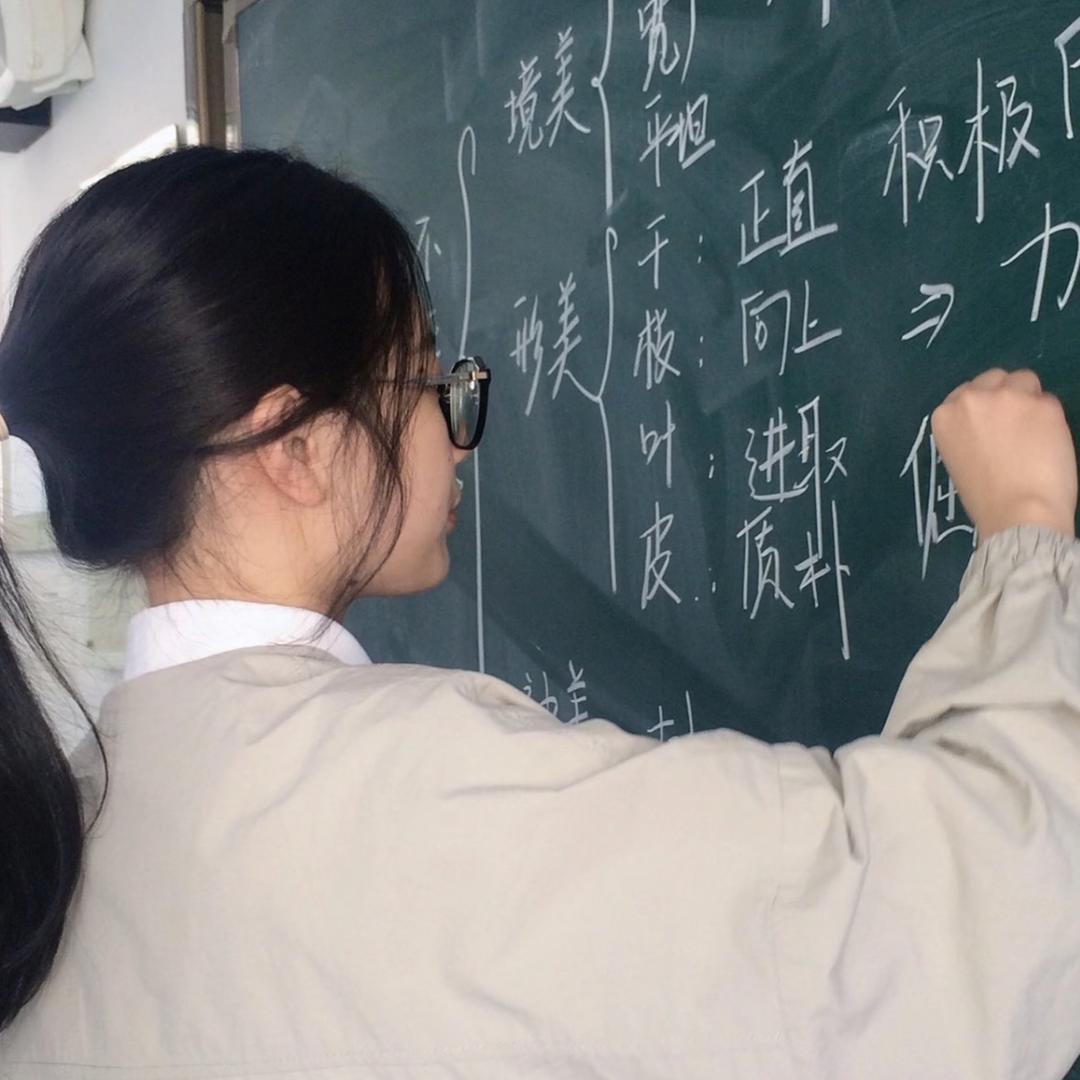 境美
宽
平坦
积极
不
形美
干：正直
枝：向上
⇒ 力
叶：进取
倔
皮：质朴
神美